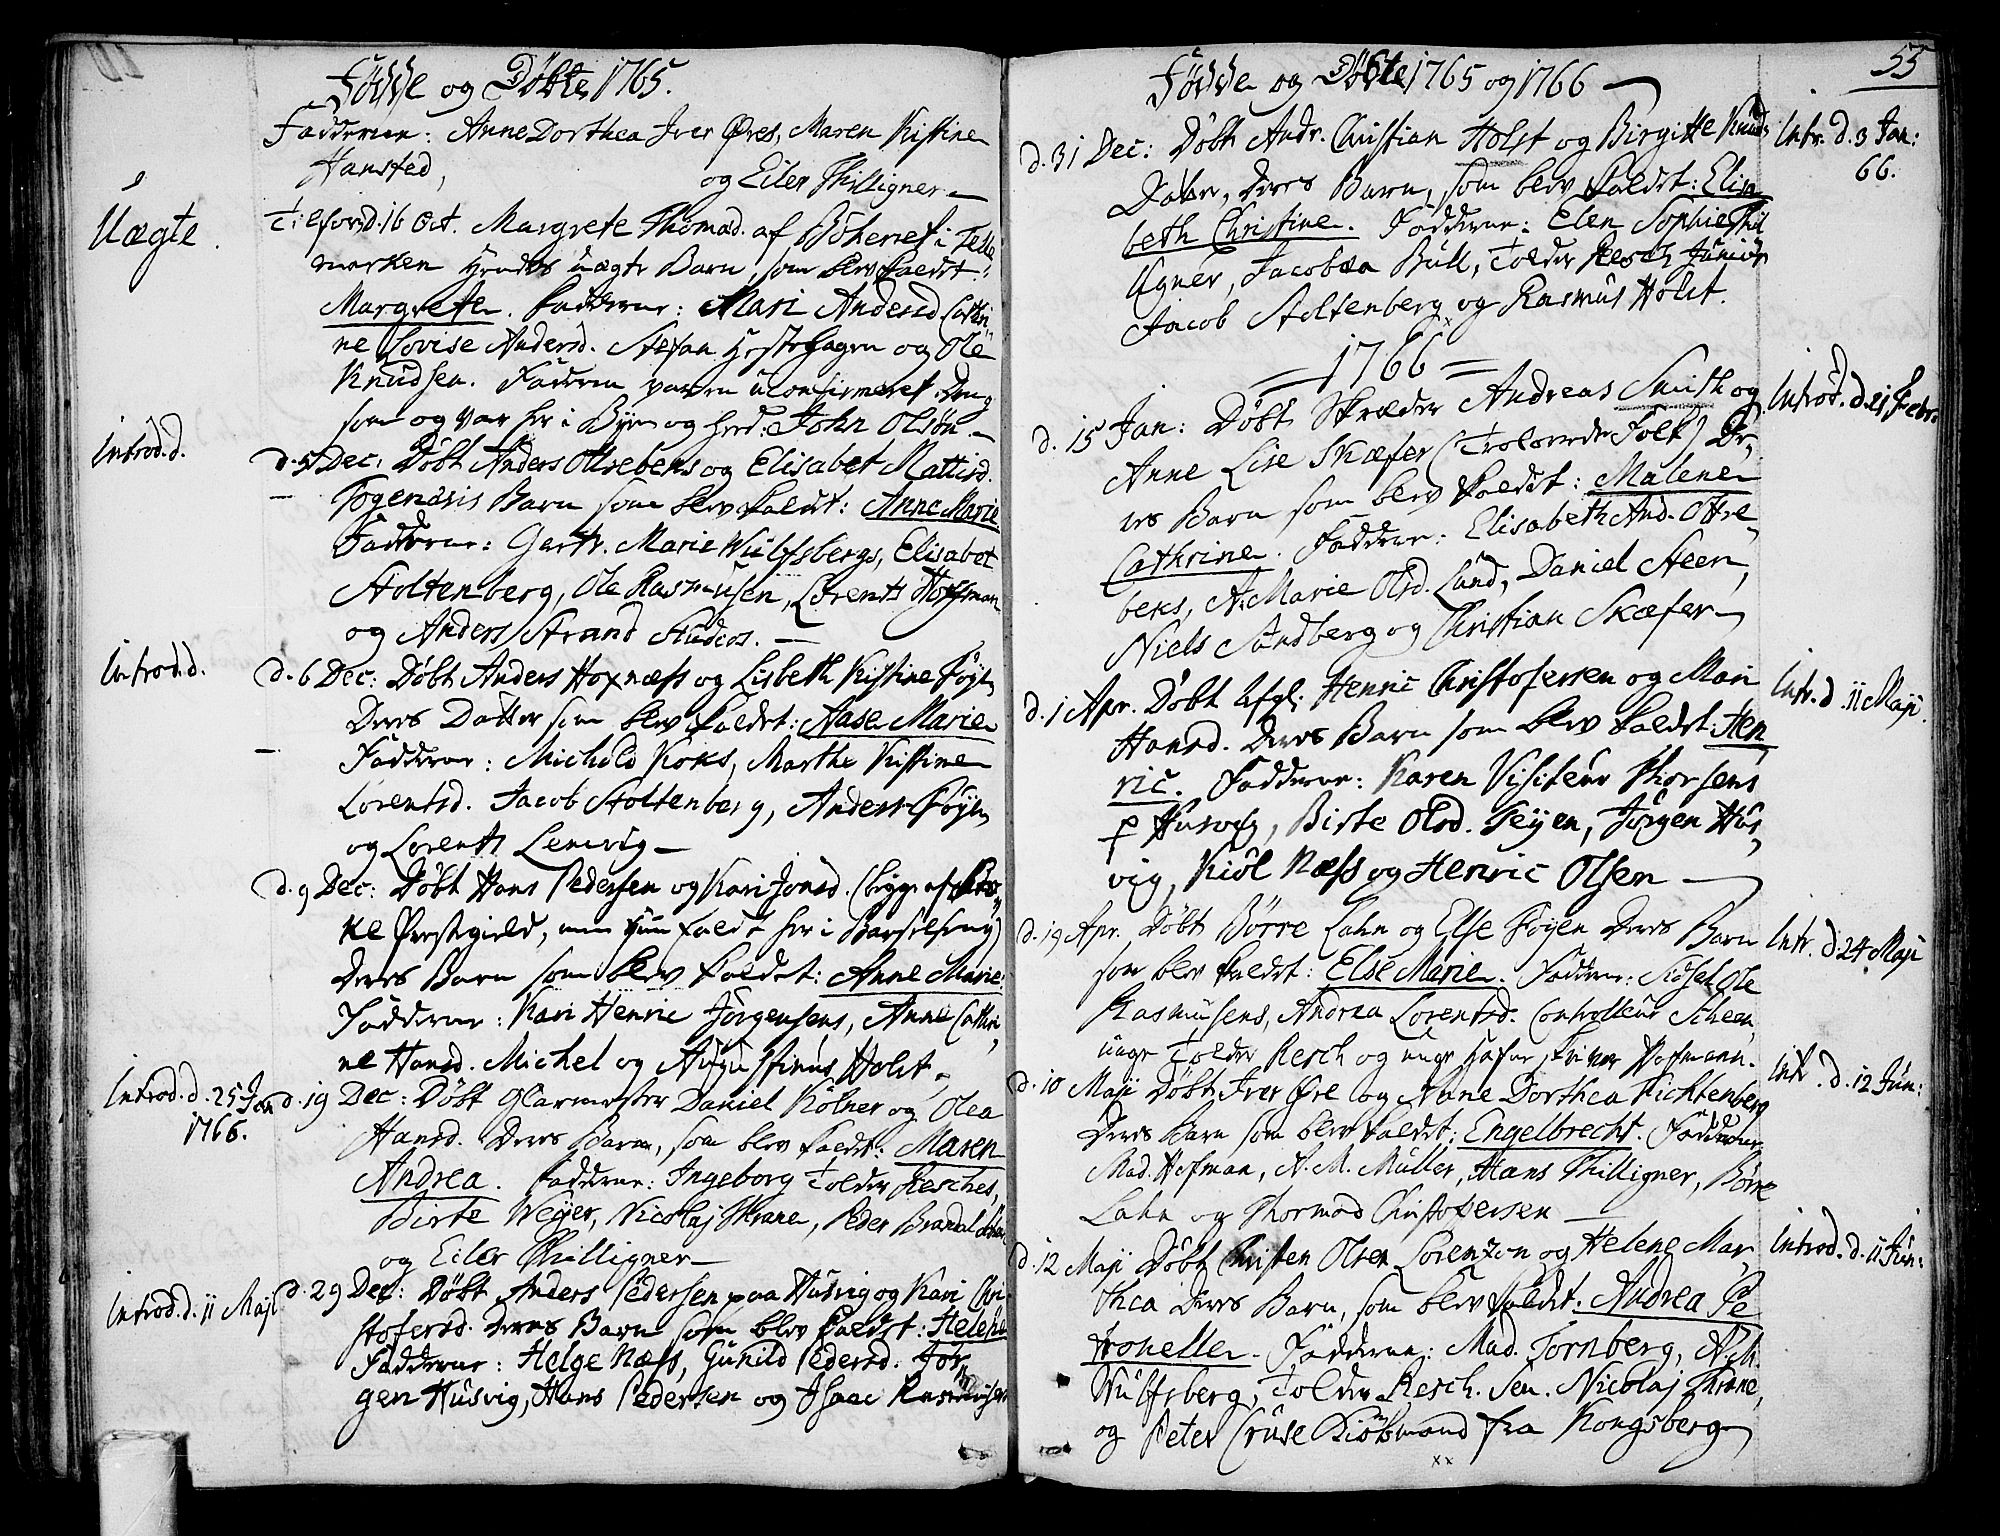 Födde og Döbte 1765.
Fadderne: Anne Dorthea Iver Øres, Maren Kistine
Hansted, og Eiler Thilligner
Uægte.
Tilforn d. 16 Oct. Margrete Thomasd. af Böherret i Telle
marken Hendes uægte Barn, som blev kaldet:
Margrete. Fadderne: Mari Andersd. Cathri
ne Lovise Andersd. Stefan Hestehagen og Ole
Knudsen. Fadderen var en uconfirmeret Dreng
som og var her i Byen og heed: John Olsön
Introd. d.
d. 5 Dec: Döbt Anders Ottrebeks og Elisabet Mattisd.
Barn som blev kaldet: Anne Marie
Fadderne: Gertr. Marie Wulfsbergs, Elisabet
Stoltenberg, Ole Rasmusen, Lorents Hoffman
og Anders Strand Studios.
Introd. d.
d. 6 Dec: Döbt Anders Hoxnæss og Lisbeth Kistine Föyn
Deres Datter som blev kaldet: Aase Marie
Fadderne: Michild Koks, Marthe Kistine
Lorentsd. Jacob Stoltenberg, Anders Föyn
og Lorents Lemvig
d. 9 Dec: Döbt Hans Pedersen og Kari Jonsd. (begge af
ke Præstegield, men hun faldt her i Barselseng)
Deres Barn som blev kaldet: Anne Marie:
Fadderne: Kari Henric Jörgensens, Anne Cathri
ne Hansd. Michel og Augustinus Holst
Introd. d. 25 Jan
1766.
d. 19 Dec: Döbt Glarmester Daniel Kölner og Olea
Hansd. Deres Barn, som blev kaldet: Maren
Andrea. Fadderne: Ingeborg Tolder Resches,
Birte Weyer, Nicolaj Thrane, Peder Brandal
og Eiler Thilligner
Introd. d. 11 Maji
d. 29 Dec: Döbt Anders Pedersen paa Husvig og Kari Chri
stofersd. Deres Barn som blev kaldet: Helene
Fadderne: Helge Næss, Gunild Pedersd. Jör
gen Husvig, Hans Pedersen og Isaac Rasmusen
55
Födde og Döbte 1765 og 1766
d. 31 Dec: Döbt Andr. Christian Holst og Birgitte Knuds
Daler, Deres Barn, som blev kaldet: Elisa
beth Christine. Fadderne: Elen Sophie Thil
ligner, Jacobæa Bull, Tolder Resch Junior
Jacob Stoltenberg og Rasmus Holst.
Intr. d. 3 Jan:
66.
1766
d. 15 Jan: Döbt Skræder Andreas Smith og
Anne Lise Skæfer (Trolovede Folk) De,
res Barn som blev kaldet: Malene
Cathrine. Fadderne: Elisabeth And. Ottre
beks, A. Marie Olsd. Lund, Daniel Steen,
Niels Sandberg og Christian Skæfer
Introd. d. 21 Febr.
d. 1 Apr. Döbt Afgl. Henric Christofersen og Mari
Hansd. Deres Barn som blev kaldet: Hen
ric. Fadderne: Karen Visiteur Thorsens
p Husvig, Birte Olsd. Feyen, Jörgen Hus,
vig, Kiöl Næss og Henric Olsen
Intr. d. 11 Maji.
d. 19 Apr. Döbt Börre Lahn og Else Föyen Deres Barn
som blev kaldet: Else Marie. Fadderne: Sidsel Ole
Rasmusens, Andrea Lorentsd. Controlleur Scheen,
unge Tolder Resch og unge Hafur skriver Hoffmann.
Intr. d. 24 Maji
d. 10 Maji Döbt Iver Øre og Anne Dorthea Fichtenberg
Deres Barn som blev kaldet: Engelbrecht. Fadderne
Mad. Hofman, A. M. Müller, Hans Thilligner, Börre
Lahn og Thormod Christopersen
Intr. d. 12 Jun:
d. 12 Maji Döbt Christen Olsen Lorenzon og Helene Mar,
thea Deres Barn, som blev kaldet: Andrea Pe
tronelle. Fadderne: Mad. Tornberg, A. M.
Wulfsberg, Tolder Resch. Sen. Nicolaj Thrane,
og Peter Cruse Kiöbmand fra Kongsberg
Introd. d. 11 Jun: